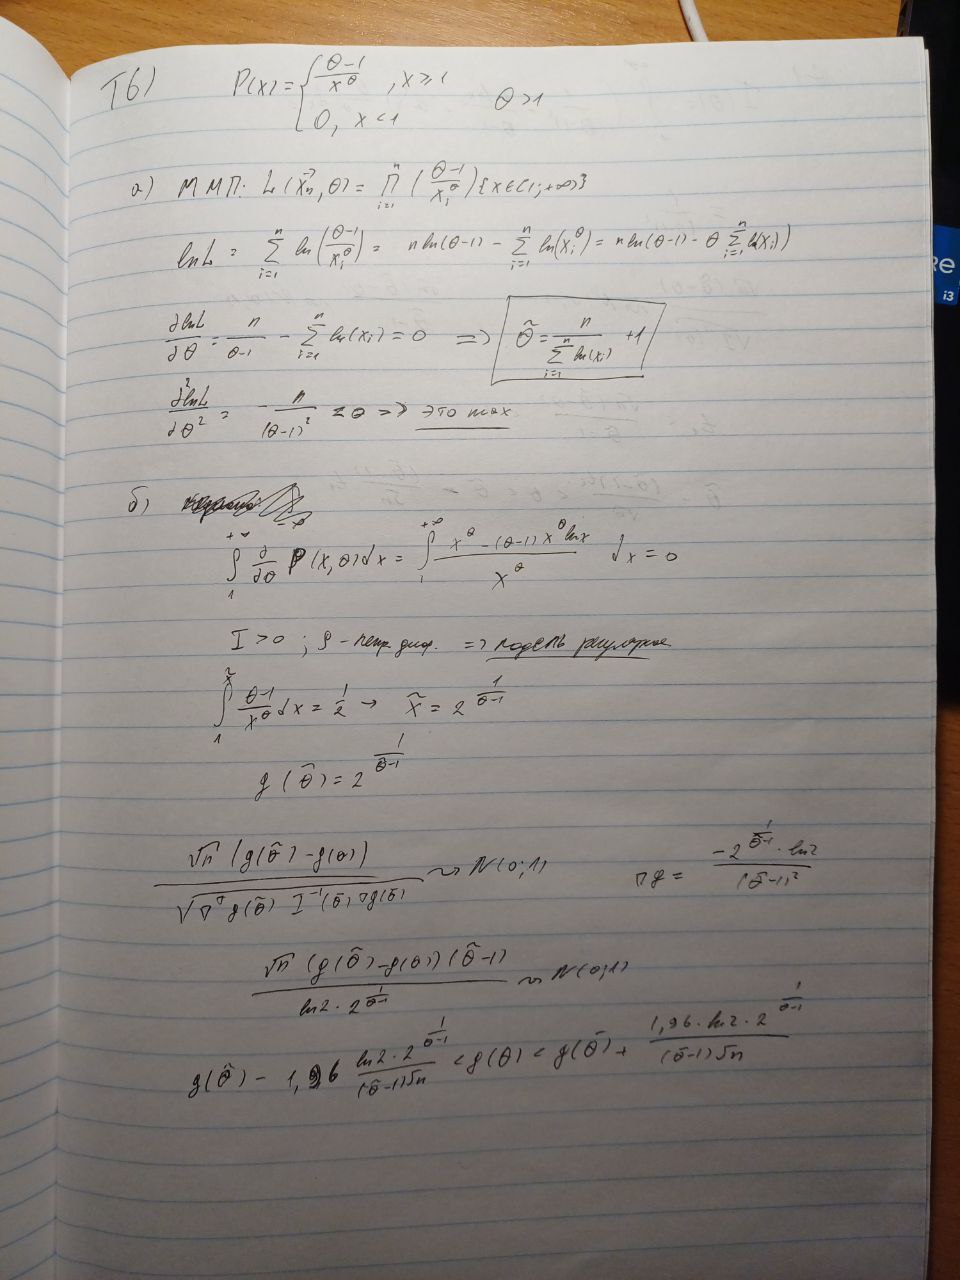 Т6) P(x) = { θ-1 / x^θ , x ≥ 1
0, x < 1 θ > 1
а) ММП: L(x⃗n, θ) = ∏_{i=1}^{n} (θ-1 / x_i^θ) {x∈(1; +∞)}
lnL = ∑_{i=1}^{n} ln(θ-1 / x_i^θ) = n ln(θ-1) - ∑_{i=1}^{n} ln(x_i^θ) = n ln(θ-1) - θ ∑_{i=1}^{n} ln(x_i))
∂lnL / ∂θ = n / θ-1 - ∑_{i=1}^{n} ln(x_i) = 0 => θ̃ = n / ∑_{i=1}^{n} ln(x_i) + 1
∂²lnL / ∂θ² = - n / (θ-1)² < 0 => это max
б)
∫_1^{+∞} ∂/∂θ P(x, θ) dx = ∫_1^{+∞} x^θ - (θ-1) x^θ lnx / x^θ dx = 0
I > 0 ; р - непр. диф. => модель регулярная
∫_1^{x̃} θ-1 / x^θ dx = 1/2 → x̃ = 2^{1/θ-1}
g(θ̃) = 2^{1/θ̃-1}
√n (g(θ̃) - g(θ)) / √∇ᵀg(θ̃) I⁻¹(θ̃) ∇g(θ̃) ~> N(0;1) ∇g = -2^{1/θ̃-1} · ln2 / (θ̃-1)²
√n (g(θ̃) - g(θ)) (θ̃-1) / ln2 · 2^{1/θ̃-1} ~> N(0;1)
g(θ̃) - 1,96 ln2 · 2^{1/θ̃-1} / (θ̃-1)√n < g(θ) < g(θ̃) + 1,96 · ln2 · 2^{1/θ̃-1} / (θ̃-1)√n
RE
i3